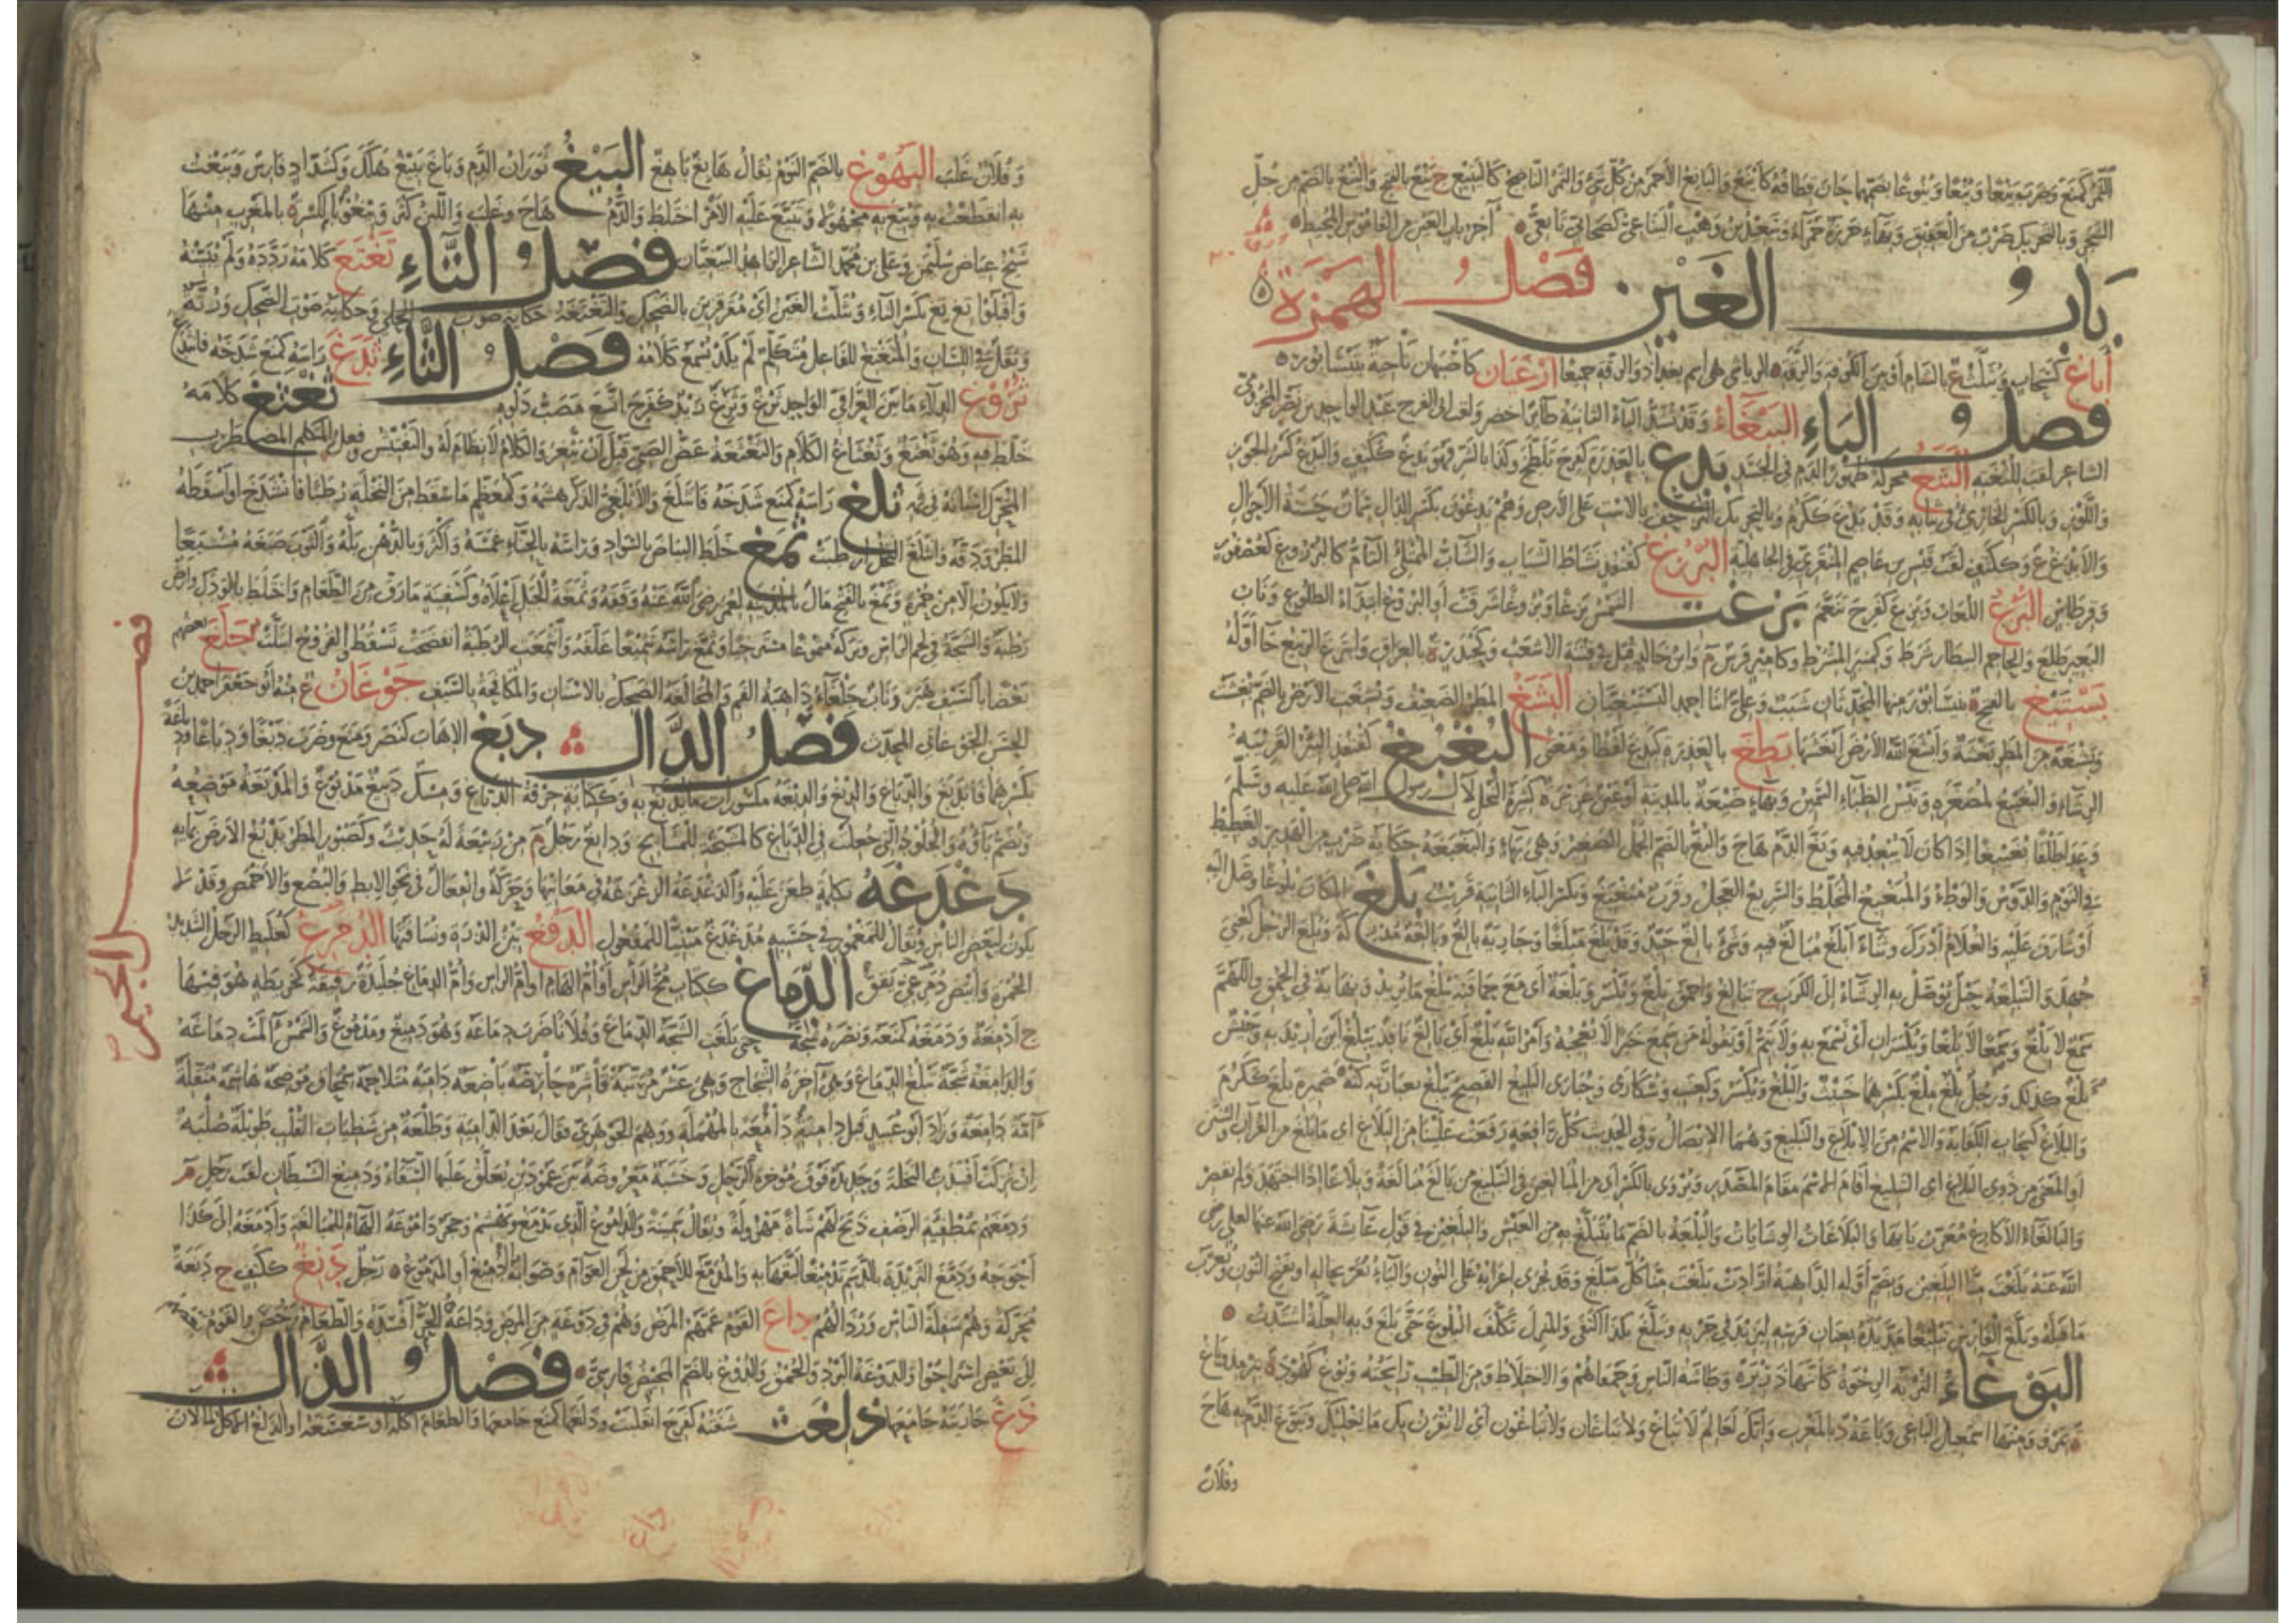 الثمر كمنع وضرب ينعا وينعا وينوعا بضمهما حان قطافه كأينع واليانع الأحمر من كل شيء والثمر الناضج كالينيع ج ينع بالفتح والينع بالضم من جل
الشجر وبالتحريك ضرب من العقيق وبهاء خرزة حمراء آخر باب العين من القاموس المحيط
باب الغين فصل الهمزة
أباغ كسحاب ويثلث ع بالشام أو بين الكوفة والرقة أرغيان كأصبهان ناحية بنيسابور
فصل الباء الببغاء وقد تشدد الباء الثانية طائر أخضر ولقب أبي الفرج عبد الواحد بن نصر المخزومي
الشاعر لقب للثغته البثغ محركة ظهور الدم في الجسد بدغ بالعذرة كفرح تلطخ وكذا بالشر فهو بدغ ككتف والبدغ كسر الجوز
واللوز وبالكسر الخارئ في ثيابه وقد بدغ ككرم وبالتحريك التزحف بالاست على الأرض وهم بدغون بكسر الدال سمان حسنة الأحوال
والأبدغ ع وككتف لقب قيس بن عاصم المنقري في الجاهلية البرزغ كقنفذ نشاط الشباب والشاب الممتلئ التام كالبرزوغ كعصفور
وقرطاس البرغ اللعاب وبرغ كفرح تنعم بزغت الشمس بزغا وبزوغا شرقت أو البزوغ ابتداء الطلوع وناب
البعير طلع والحاجم البيطار شرط وكمنبر المشرط وكأمير فرس م بالعراق وابتزغ الربيع جاء أوله
بستيغ بالفتح ة بنيسابور منها المحدثان شبيب وعلي ابنا أحمد البستيغيان البشغ المطر الضعيف وبشغت الأرض بالضم بغشت
وبشغة من المطر بغشة وأبشغ الله الأرض أبغشها بطغ بالعذرة كبدغ لفظا ومعنى البغبغ كقنفذ البئر القريبة
الرشاء والبغيبغ لمصغره وتيس الظباء السمين وبهاء ضيعة بالمدينة كثيرة النخل لآل رسول الله صلى الله عليه وسلم
وعدا طلقا بغيبغا إذا كان لا يبعد فيه وبغ الدم هاج والبغ بالضم الجمل الصغير وهي بهاء والبغبغة حكاية ضرب من الهدير والغطيط
في النوم والدوس والوطء والمبغبغ المخلط والسريع العجل وقرب مبغبغ وبكسر الباء الثانية قريب بلغ المكان بلوغا وصل إليه
أو شارف عليه والغلام أدرك وثناء أبلغ مبالغ فيه وشيء بالغ جيد وقد بلغ مبلغا وجارية بالغ وبالغة مدركة وبلغ الرجل كعني
جهد والتبلغة حبل يوصل به الرشاء إلى الكرب ج تبالغ وأحمق بلغ ويكسر وبلغة أي مع حماقته يبلغ ما يريد أو نهاية في الحمق واللهم
سمع لا بلغ وسمعا لا بلغا ويكسران أي نسمع به ولا يتم أو يقوله من سمع خبرا لا يعجبه وأمر الله بلغ أي بالغ نافذ يبلغ أين أريد به وجيش
بلغ كذلك ورجل بلغ ملغ بكسرهما خبيث والبلغ ويكسر وكعنب وسكارى وحبارى البليغ الفصيح يبلغ بعبارته كنه ضميره بلغ ككرم
والبلاغ كسحاب الكفاية والاسم من الإبلاغ والتبليغ وهما الإيصال وفي الحديث كل رافعة رفعت علينا من البلاغ أي ما بلغ من القرآن والسنن
أو المعنى من ذوي البلاغ أي التبليغ أقام الاسم مقام المصدر ويروى بالكسر أي من المبالغين في التبليغ من بالغ مبالغة وبلاغا إذا اجتهد ولم يقصر
والبالغاء الأكارع معرب پايها والبلاغات الوشايات والبلغة بالضم ما يتبلغ به من العيش والبلغين في قول عائشة رضي الله عنها لعلي رضي
الله عنه بلغت منا البلغين وبضم أوله الداهية أرادت بلغت منا كل مبلغ وقد يجرى إعرابه على النون والياء تقر بحالها أو يفتح النون ويعرب
ما قبله وبلغ الفارس تبليغا مد يده بعنان فرسه ليزيد في جريه وتبلغ بكذا اكتفى والمنزل تكلف البلوغ حتى بلغ وبه العلة اشتدت
البوغاء التربة الرخوة كأنها ذريرة وطاشة الناس وحمقاهم والاختلاط ومن الطيب رائحته
ة بمرو ومنها إسمعيل الباغي وباغة د بالمغرب وإنك لعالم لا تباغ ولا تباغان ولا تباغون أي لا يقرن بك ما يغلبك وتبوغ الدم به هاج
وفلان
وفلان غلب البهوغ بالضم النوم يقال هابغ باهغ البيغ ثوران الدم وباغ يبيغ هلك وكشداد فارس وبيغت
به انقطعت به وتبيغ به مجهولا وتبيغ عليه الأمر اختلط والدم هاج وغلب واللبن كثر بالكسر ة بالمغرب منها
شيخ عياض سليمن وعلي بن محمد الشاعر الزاهد البيغيان فصل التاء تغتغ كلامه ردده ولم يبينه
وأقبلوا تغ تغ بكسر التاء ويثلث الغين أي مقرقرين بالضحك والتغتغة حكاية صوت الحلي وحكاية صوت الضحك ورتة
وثقل في اللسان والمتغتغ للفاعل متكلم لم يكد يسمع كلامه فصل الثاء ثدغ رأسه كمنع شدخه فانثدغ
ثروغ الدلاء ما بين العراقي الواحد ثرغ وثرغ زيد كفرح اتسع مصب دلوه ثغثغ كلامه
خلط فيه وهو ثغثغ وثغثاغ الكلام والثغثغة عض الصبي قبل أن يثغر والكلام لا نظام له والتفتيش وفعل المتكلم المضطرب
المحرك لسانه في فيه ثلغ رأسه كمنع شدخه فانثلغ والأثلغي الذكر وكمعظم ما سقط من النخلة رطبا فانشدخ أو أسقطه
المطر ودقه وانثلغ النخل أرطبت ثمغ خلط البياض بالسواد ورأسه بالحناء غمسه وأكثر وبالدهن بله والثوب صبغه مشبعا
ولا يكون إلا من حمرة وثمغ بالفتح مال بالمدينة لعمر رضي الله عنه وقفه وثمغة الجبل أعلاه وكسفينة ما رق من الطعام واختلط بالودك وأرض
رطبة والشجة في لحم الرأس وتركه مثموغا مسترخيا وثمغ رأسه تثميغا غلفه وانثمغت الرطبة انفضخت تسقط والقروح ابتلت جلغ بعضهم
بعضا بالسيف هبر وناب جلغاء ذاهبة الفم والمجالغة الضحك بالأسنان والمكافحة بالسيف جوغان ع منه أبو جعفر أحمد بن
الحسن الجوغاني المحدث فصل الدال دبغ الإهاب كنصر ومنع وضرب دبغا ودباغا ودباغة
بكسرهما فاندبغ والدباغ والدبغ والدبغة مكسورات ما يدبغ به وككتابة حرفة الدباغ ومسك دبيغ مدبوغ والمدبغة موضعه
وتضم باؤه والجلود التي جعلت في الدباغ كالمشيخة للمشايخ ودابغ رجل م من ربيعة له حديث وكصبور المطر يدبغ الأرض بمائه
دغدغه بكلمة طعن عليه والدغدغة الزغزغة في معانيها وحركة وانفعال في نحو الإبط والبضع والأخمص وقد لا
يكون لبعض الناس ويقال للمغموز في حسبه مدغدغ مبنيا للمفعول الدفغ تبن الذرة ونسافتها الدمرغ كعلبط الرجل الشديد
الحمرة وأبيض دمرغي يقق الدماغ ككتاب مخ الرأس أو أم الهام أو أم الرأس وأم الدماغ جليدة رقيقة كخريطة هو فيها
ج أدمغة ودمغه كمنعه ونصره شجه حتى بلغت الشجة الدماغ وفلانا ضرب دماغه وهو دميغ ومدموغ والشمس آلمت دماغه
والدامغة شجة تبلغ الدماغ وهي آخرة الشجاج وهي عشر مرتبة قاشرة حارصة باضعة دامية متلاحمة سمحاق موضحة هاشمة منقلة
آمة دامغة وزاد أبو عبيد قبل دامية دامعة بالمهملة ووهم الجوهري فقال بعد الدامية وطلعة من شظيات القلب طويلة صلبة
إن تركت أفسدت النخلة وحديدة فوق مؤخرة الرحل وخشبة معروضة بين عمودين يعلق عليها السقاء ودميغ الشيطان لقب رجل م
ودمغهم بمطفئة الرضف ذبح لهم شاة مهزولة ويقال سمينة والداموغ الذي يدمغ ويهشم وحجر داموغة الهاء للمبالغة وأدمغه إلى كذا
أحوجه ودمغ الثريدة بالدسم تدميغا لبقها به والمدمغ للأحمق من لحن العوام وصوابه الدميغ أو المدموغ رجل دنغ ككتف ج دنغة
محركة وهم سفلة الناس ورذالهم داغ القوم عمهم المرض وهم في دوغة من المرض وداغه الحر أفسده والطعام رخص والقوم بعضهم
إلى بعض استراحوا والدوغة البرد والحمق والدوغ بالضم المخيض فارسي فصل الذال
ذغ جاريته جامعها ذلغت شفته كفرح انقلبت وذلغها كمنع جامعها والطعام أكله
فصل الجيم